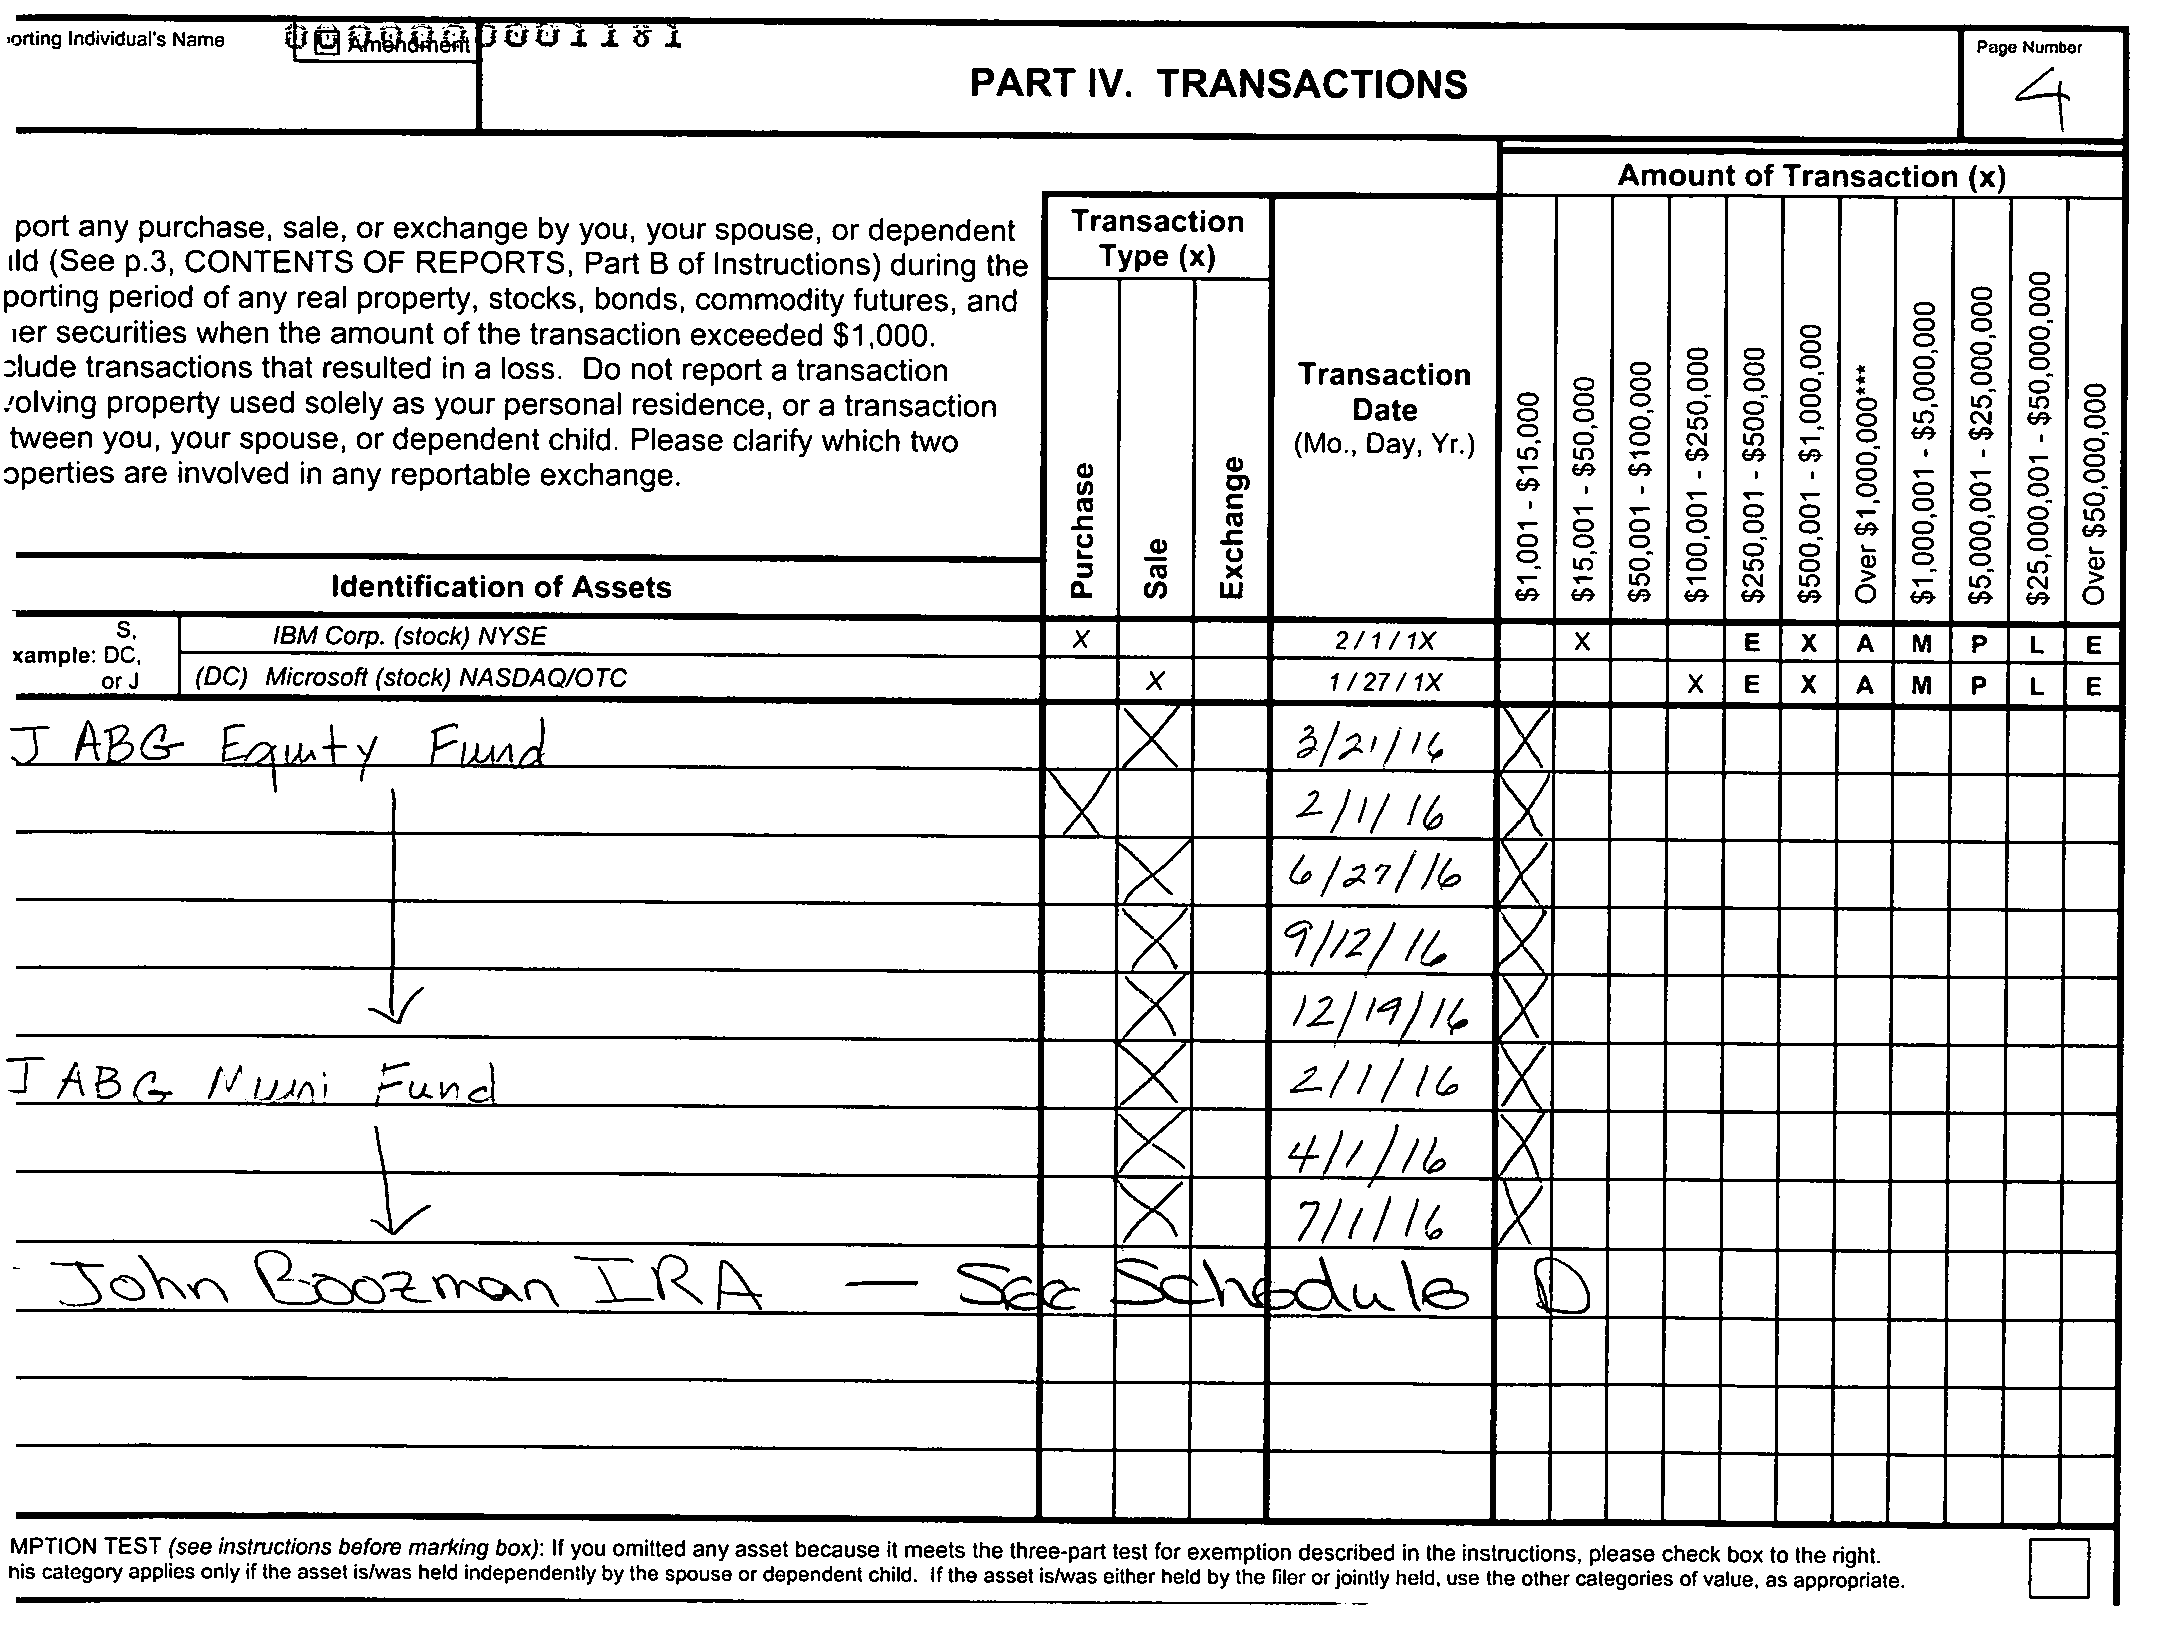 orting Individual's Name
Amendment
0001181
PART IV. TRANSACTIONS
Page Number
4
Amount of Transaction (x)
port any purchase, sale, or exchange by you, your spouse, or dependent
ild (See p.3, CONTENTS OF REPORTS, Part B of Instructions) during the
porting period of any real property, stocks, bonds, commodity futures, and
er securities when the amount of the transaction exceeded $1,000.
clude transactions that resulted in a loss. Do not report a transaction
volving property used solely as your personal residence, or a transaction
tween you, your spouse, or dependent child. Please clarify which two
operties are involved in any reportable exchange.
Transaction
Type (x)
Purchase
Sale
Exchange
Transaction
Date
(Mo., Day, Yr.)
$1,001 - $15,000
$15,001 - $50,000
$50,001 - $100,000
$100,001 - $250,000
$250,001 - $500,000
$500,001 - $1,000,000
Over $1,000,000***
$1,000,001 - $5,000,000
$5,000,001 - $25,000,000
$25,000,001 - $50,000,000
Over $50,000,000
Identification of Assets
xample: S, DC, or J
IBM Corp. (stock) NYSE X 2 / 1 / 1X X E X A M P L E
(DC) Microsoft (stock) NASDAQ/OTC X 1 / 27 / 1X X E X A M P L E
J ABG Equity Fund X 3/21/16 X
X 2/1/16 X
X 6/27/16 X
X 9/12/16 X
X 12/19/16 X
J ABG Muni Fund X 2/1/16 X
X 4/1/16 X
X 7/1/16 X
John Boozman IRA — See Schedule D
MPTION TEST (see instructions before marking box): If you omitted any asset because it meets the three-part test for exemption described in the instructions, please check box to the right.
his category applies only if the asset is/was held independently by the spouse or dependent child. If the asset is/was either held by the filer or jointly held, use the other categories of value, as appropriate.